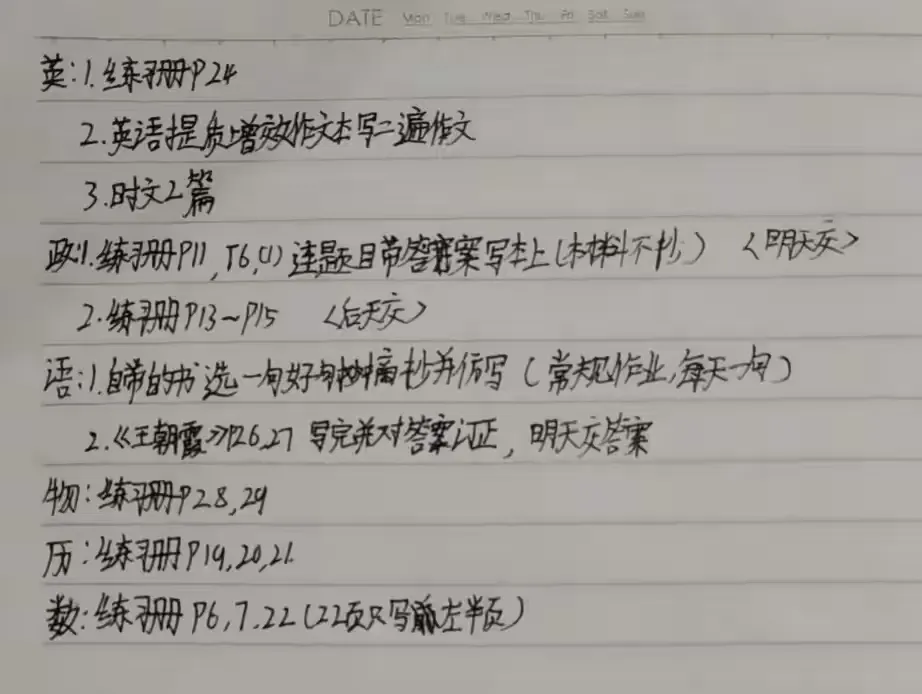 DATE Mon Tue Wed Thu Fri Sat Sun
英:1.练习册P24
2.英语提质增效作文本写二遍作文
3.时文2篇
政:1.练习册P11,T6,(1)连题目带答案写本上(材料不抄) <明天交>
2.练习册P13~P15 <后天交>
语:1.自带的书选一句好句摘抄并仿写(常规作业,每天一句)
2.《王朝霞》P26,27 写完并对答案订正,明天交答案
物:练习册P28,29
历:练习册P19,20,21
数:练习册P6,7,22(22页只写左半页)